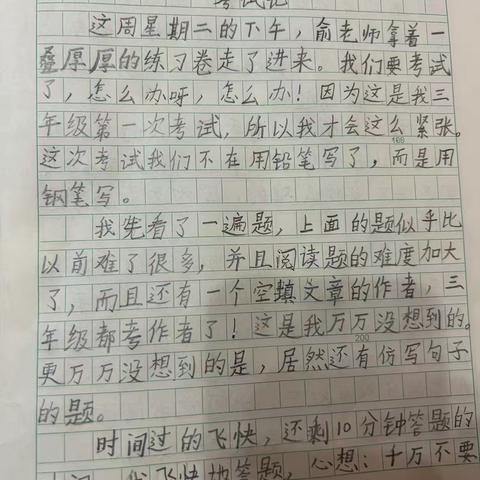 考试记
这周星期二的下午，俞老师拿着一
叠厚厚的练习卷走了进来。我们要考试
了，怎么办呀，怎么办！因为这是我三
年级第一次考试，所以我才会这么紧张。
这次考试我们不在用铅笔写了，而是用
100
钢笔写。
我先看了一遍题，上面的题似乎比
以前难了很多，并且阅读题的难度加大
了，而且还有一个空填文章的作者，三
年级都考作者了！这是我万万没想到的。
200
更万万没想到的是，居然还有仿写句子
的题。
时间过的飞快，还剩10分钟答题的
时间，我飞快地答题，心想：千万不要